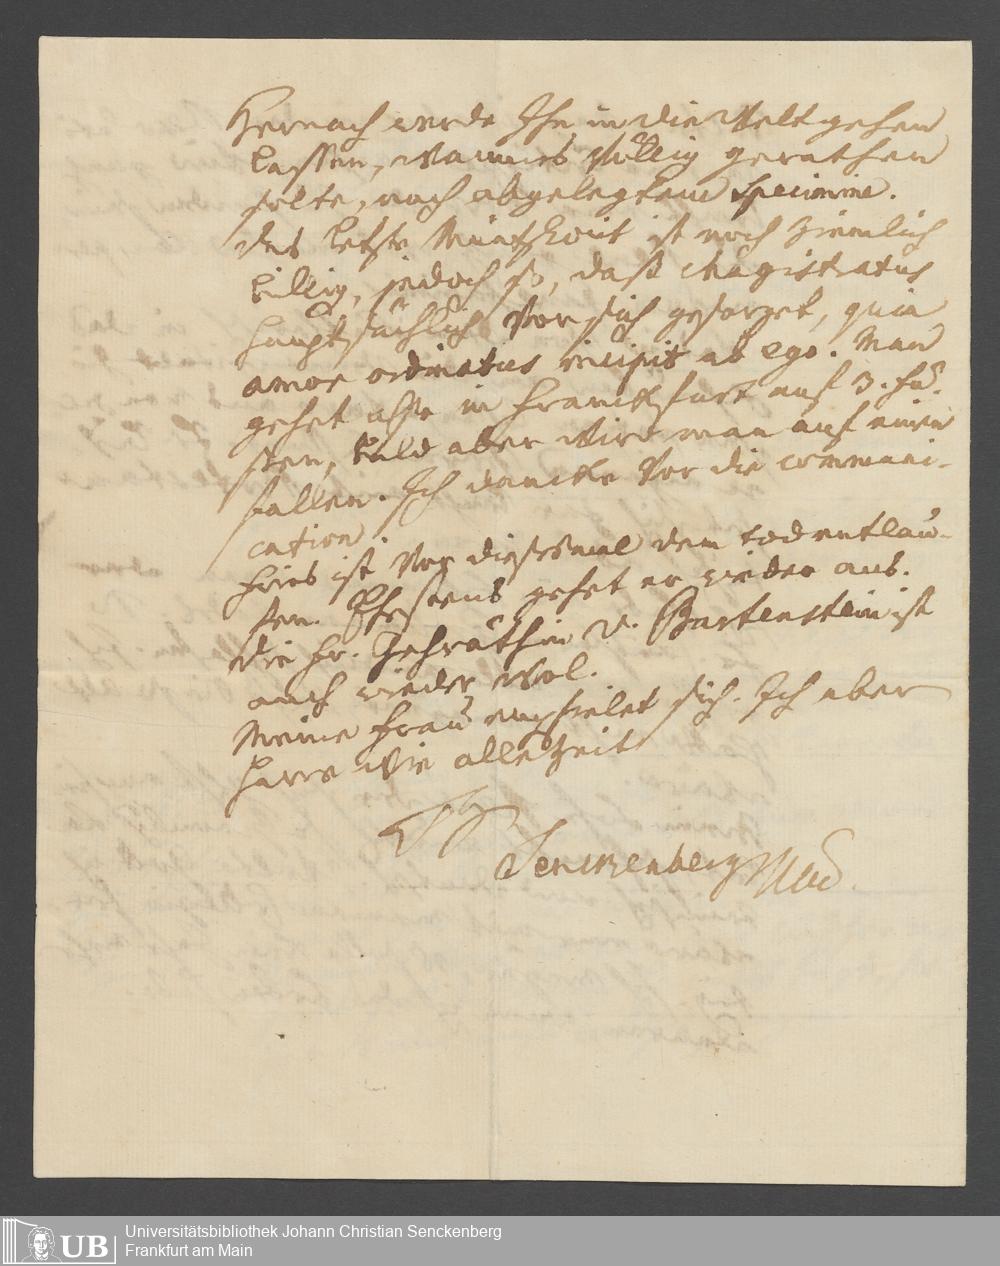 Hernach werde Ihn in die Welt gehen
lassen, wann es völlig gerathen
solte, nach abgelegtem specimine.
das letzte Müntz Edict ist noch ziemlich
billig, jedoch so, daß Magistratus
hauptsächlich vor sich gesorget, quia
amor ordinatus incipit ab ego. Man
gehet also in Franckfurt auf 3. Fü-
ßen, bald aber wird man auf einen
fallen. Ich dancke vor die communi-
cation.
Fries ist vor diesesmal dem tod entlau-
fen. Ehestens gehet er wieder aus.
die Fr. Gehräthin v. Bartenstein ist
auch wieder wol.
Meine Frau empfielet sich. Ich aber
harre wie allezeit
Senckenberg
Universitätsbibliothek Johann Christian Senckenberg
UB
Frankfurt am Main